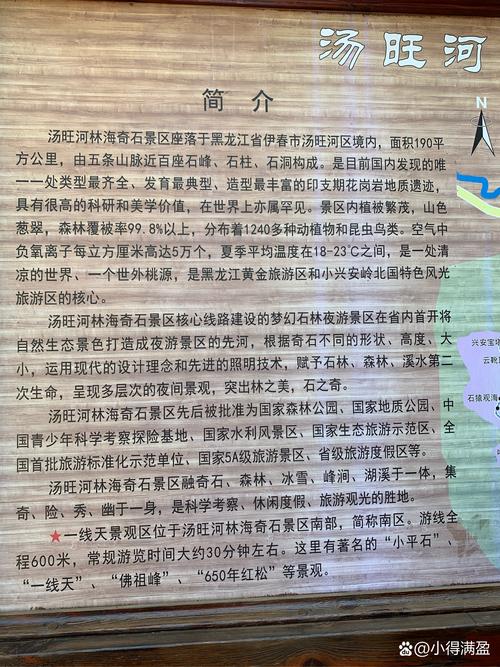 汤旺河
N
简 介
汤旺河林海奇石景区座落于黑龙江省伊春市汤旺河区境内，面积190平
方公里，由五条山脉近百座石峰、石柱、石洞构成。是目前国内发现的唯
一一处类型最齐全、发育最典型、造型最丰富的印支期花岗岩地质遗迹，
具有很高的科研和美学价值，在世界上亦属罕见。景区内植被繁茂，山色
葱翠，森林覆被率99.8%以上，分布着1240多种动植物和昆虫鸟类。空气中
负氧离子每立方厘米高达5万个，夏季平均温度在18-23℃之间，是一处清
凉的世界、一个世外桃源，是黑龙江黄金旅游区和小兴安岭北国特色风光
旅游区的核心。
汤旺河林海奇石景区核心线路建设的梦幻石林夜游景区在省内首开将
自然生态景色打造成夜游景区的先河，根据奇石不同的形状、高度、大
小，运用现代的设计理念和先进的照明技术，赋予石林、森林、溪水第二
次生命，呈现多层次的夜间景观，突出林之美，石之奇。
汤旺河林海奇石景区先后被批准为国家森林公园、国家地质公园、中
国青少年科学考察探险基地、国家水利风景区、国家生态旅游示范区、全
国首批旅游标准化示范单位、国家5A级旅游景区、省级旅游度假区等。
汤旺河林海奇石景区融奇石、森林、冰雪、峰涧、湖溪于一体，集
奇、险、秀、幽于一身，是科学考察、休闲度假、旅游观光的胜地。
★一线天景观区位于汤旺河林海奇石景区南部，简称南区。游线全
程600米，常规游览时间大约30分钟左右。这里有著名的“小平石”、
“一线天”、“佛祖峰”、“650年红松”等景观。
兴安宝塔
云靴
石猿观海
百家号@小得满盈